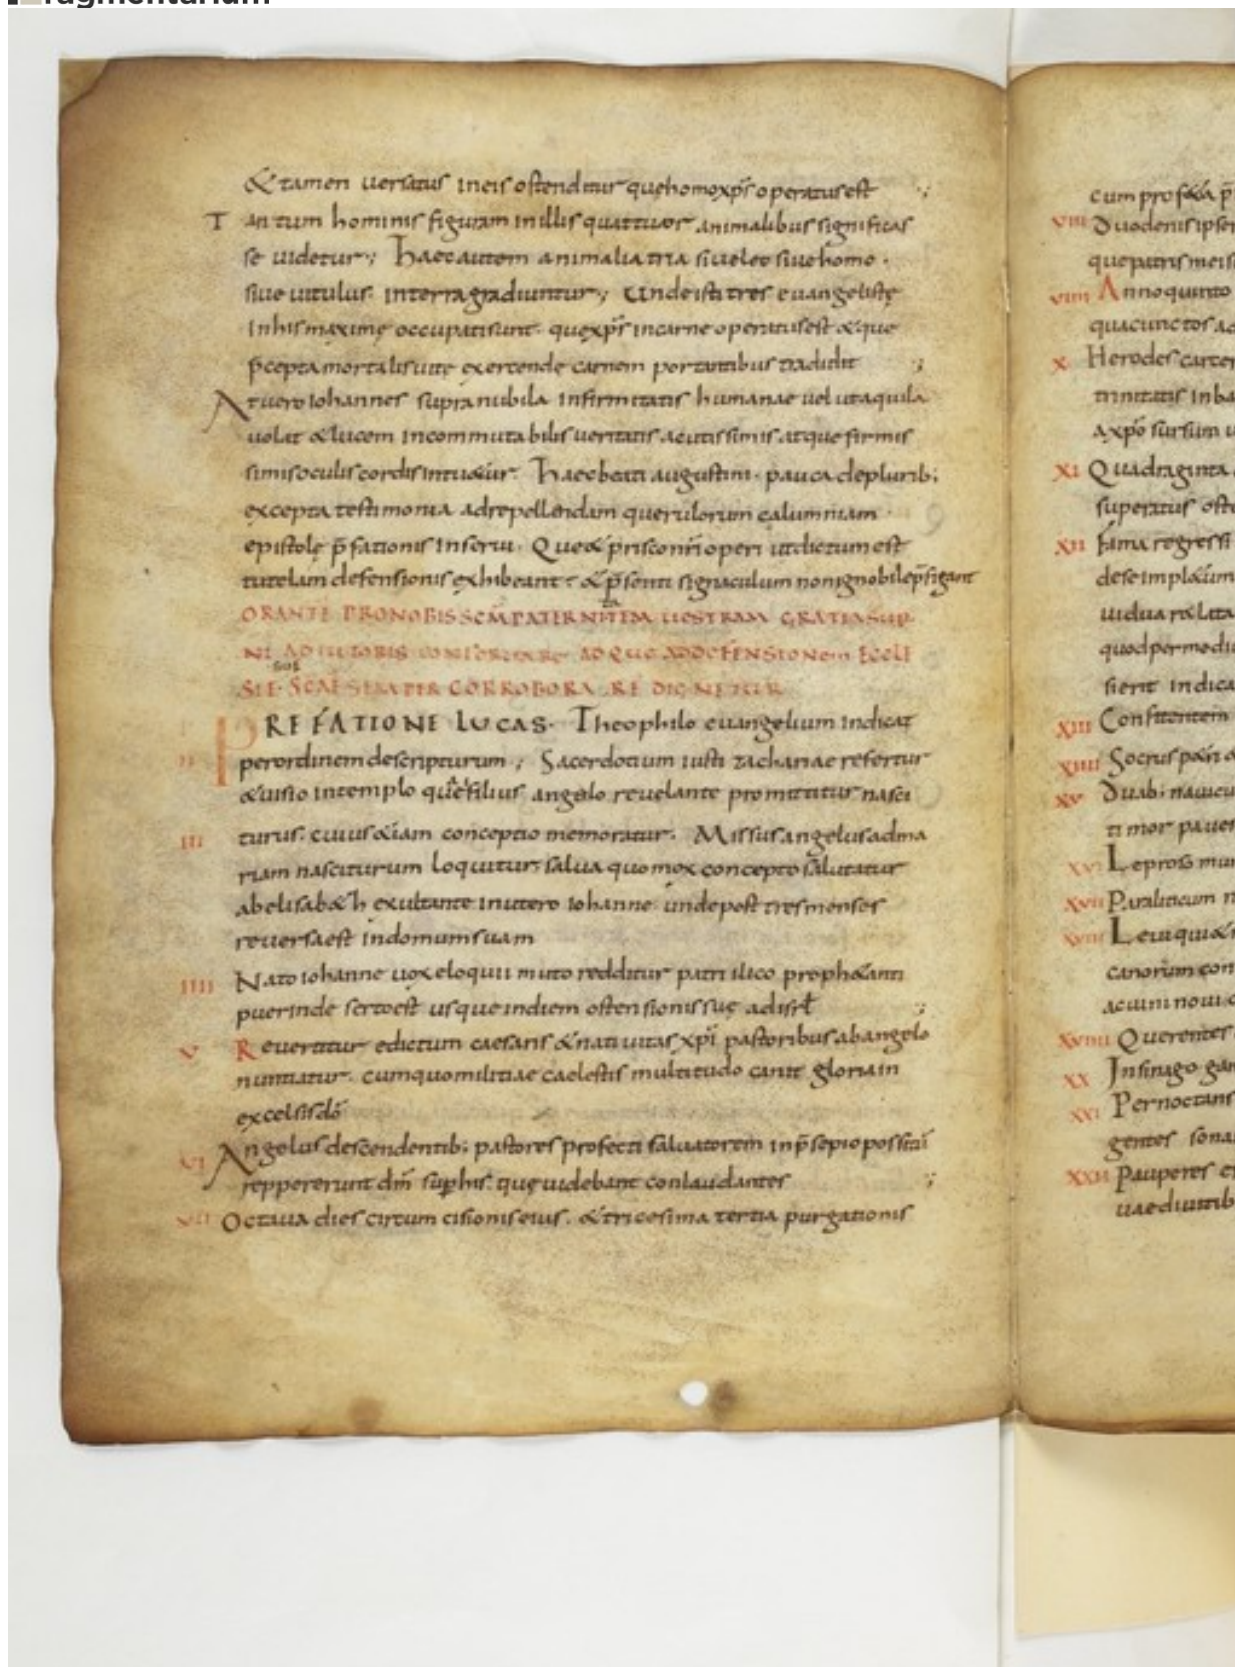 ragmentarium
& tamen uersatus in eis ostenditur quę homo xp̄s operatus est ;
T antum hominis figuram in illis quattuor animalibus significas
se uidetur; Haec autem animalia tria siue leo siue homo .
siue uitulus. in terra gradiuntur; Unde isti tres euangelistę
In his maxime occupati sunt. quę xp̄s in carne operatus est & que
p̄cepta mortalis uitę exercende carnem portantibus tradidit ;
At uero iohannes supra nubila infirmitatis humanae uel ut aquila
uolat & lucem incommutabilis ueritatis acutissimis atque firmis
simis oculis cordis intu&ur. Haec beati augustini. pauca de plurib;
excepta testimonia ad repellendam querulorum calumniam
epistolę p̄fationis Inserui. Que & prisco nr̄i operi ut dictum est
tutelam defensionis exhibeant. & p̄senti signaculum non ignobile p̄figant
ORANTE PRO NOBIS SCM̄ PATERNITATEM UESTRAM GRATIA SUP
NI ADIUTORIS CONFORTARE ADQUE AD DEFENSIONEM ECCLE
SIE SCAE SEMPER CORROBORARE DIGNETUR
PREFATIONE LUCAS. Theophilo euangelium indicat
II per ordinem descripturum; Sacerdotium iusti zachariae refertur
& uisio in templo quę filius angelo reuelante promittitur nasci
III turus. cuius &iam conceptio memoratur. Missus angelus ad ma
riam nasciturum loquitur salua quo mox concepto salutatur
ab elisab&h exultante in utero iohanne. unde post tres menses
reuersa est in domum suam
IIII Nato iohanne uox eloquii muto redditur patri ilico proph&anti
puer inde
est usque in diem ostensionis suę ad isrl̄ ;
V Reuertitur edictum caesaris & natiuitas xpī pastoribus ab angelo
nuntiatur. cum quo militiae caelestis multitudo canit gloria in
excelsis dō
VI Angelus descendentib; pastores profecti saluatorem in p̄sepio possitū
reppererunt dm̄ sup his que uidebant conlaudantes ;
VII Octaua dies circumcisionis eius. & tricesima tertia purgationis
cum prof&a
VIII Duodenis ipse
que patris meis
VIIII Anno quinto
qua cunctos
X Herodes
trinitatis in ba
a xpō sursum
XI Quadraginta
superatus
XII Fama regressi
de se
uidua
quod per
fierit indica
XIII Confitentem
XIIII Socrus
XV Duab;
timor
XVI Leprosū mun
XVII Paraliticum
XVIII Leui qui &
canorum con
ac uini noui
XVIIII Querentes
XX In sinagoga
XXI Pernoctans
gentes sona
XXII Pauperes
uae diuitib